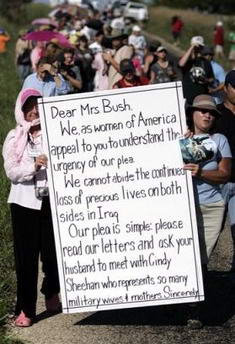 Dear Mrs Bush.
We, as women of America
appeal to you to understand the
urgency of our plea.
We cannot abide the continued
loss of precious lives on both
sides in Iraq
Our plea is simple: please
read our letters and ask your
husband to meet with Cindy
Sheehan who represents so many
military wives & mothers. Sincerely